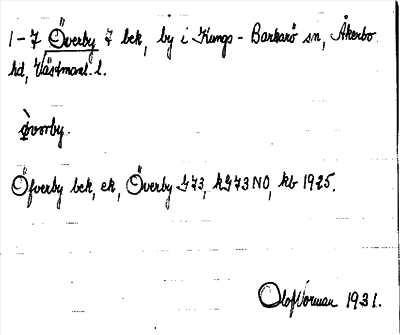 1-7 Överby 7 bek, by i Kungs-Barkarö sn, Åkerbo
hd, Västmanl. l.
överby.
Öfverby bek, ek, Överby G73, kG73NO, kb 1925.
Olof Norman 1931.